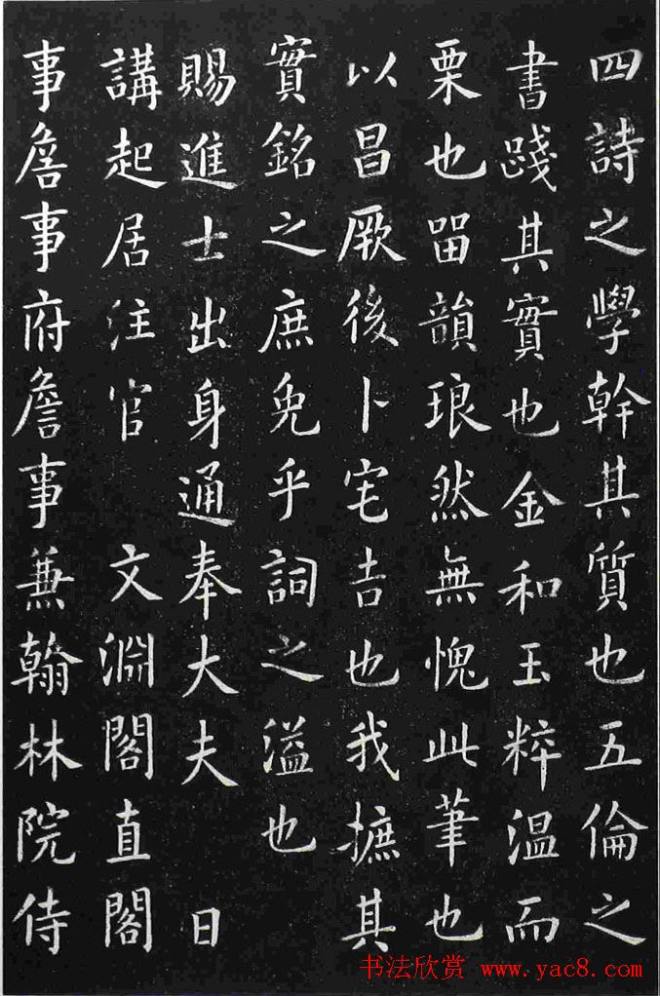 四詩之學幹其質也五倫之
書踐其實也金和玉粹温而
栗也留韻琅然無愧此筆也
以昌厥後卜宅吉也我摭其
實銘之庶免乎詞之溢也
賜進士出身通奉大夫 日
講起居注官 文淵閣直閣
事詹事府詹事兼翰林院侍
书法欣赏 www.yac8.com